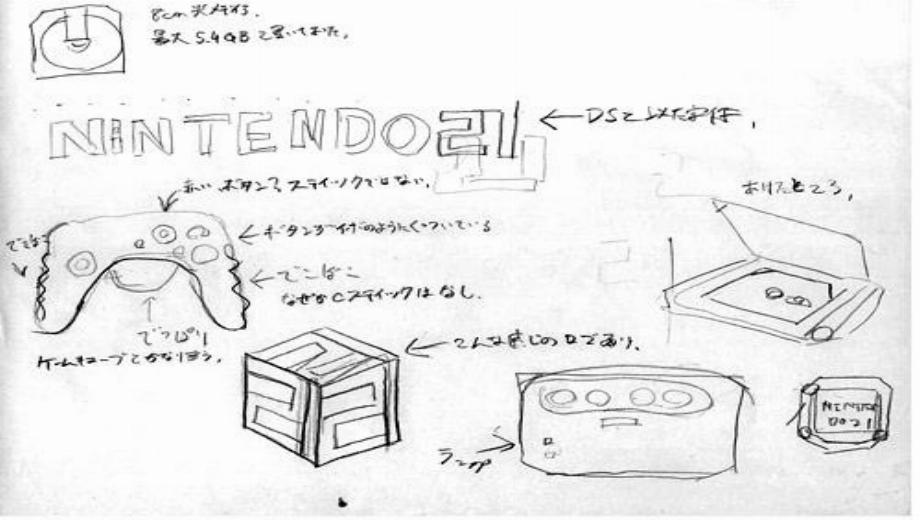 8cm光メディア.
最大 5.4GB と書いてあった.
NINTENDO21
←DSと似た字体.
赤いボタン?スティックではない.
あけたところ.
でこぼこ
←ボタンが のようにくっついている
←でこぼこ
なぜかCスティックはなし.
でっぱり
ゲームキューブとかなり違う.
←こんな感じのロゴあり.
ランプ
NINTEN
DO21